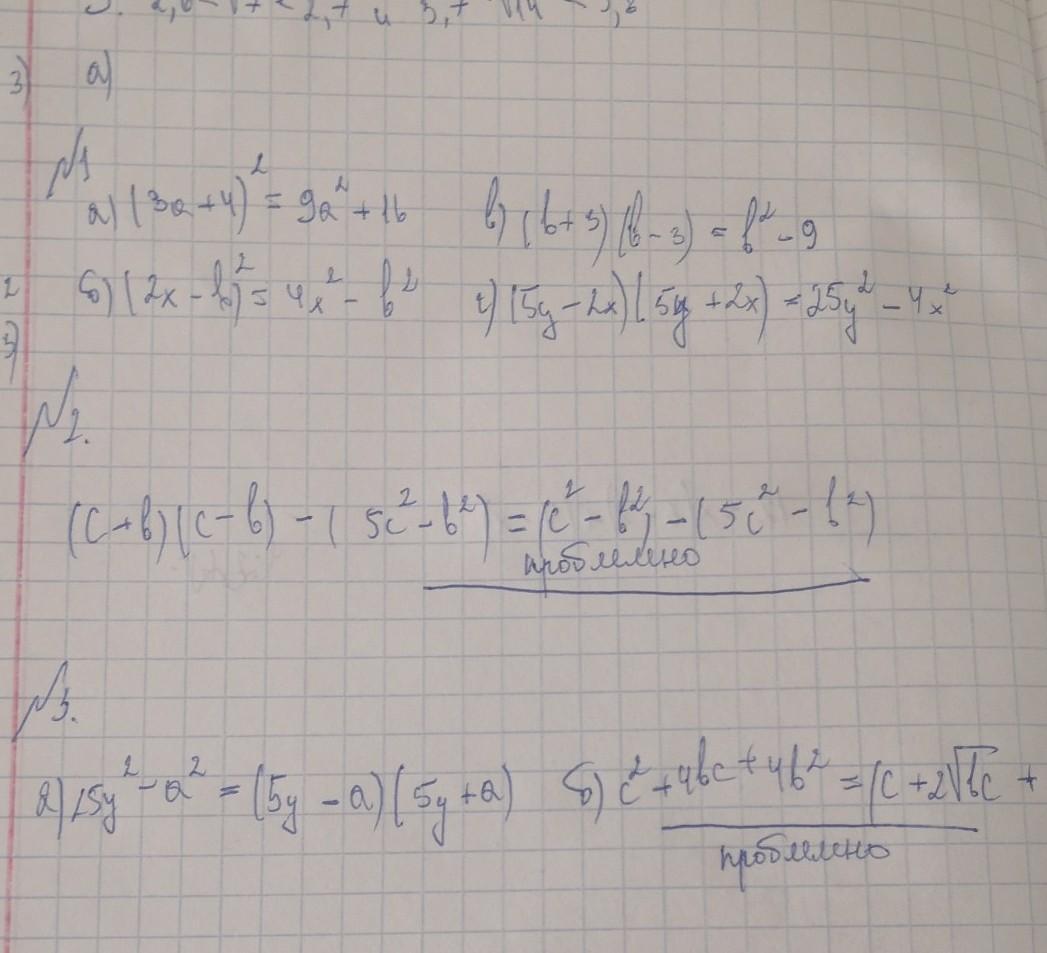 3) а)
№1
а) (3a+4)² = 9a² + 16 в) (b+3)(b-3) = b² - 9
б) (2x - b)² = 4x² - b² г) (5y - 2x)(5y + 2x) = 25y² - 4x²
3)
№2.
(c+b)(c-b) - (5c² - b²) = (c² - b²) - (5c² - b²)
проблемно
№3.
а) 25y² - a² = (5y - a)(5y + a) б) c² + 4bc + 4b² = (c + 2√bc +
проблемно